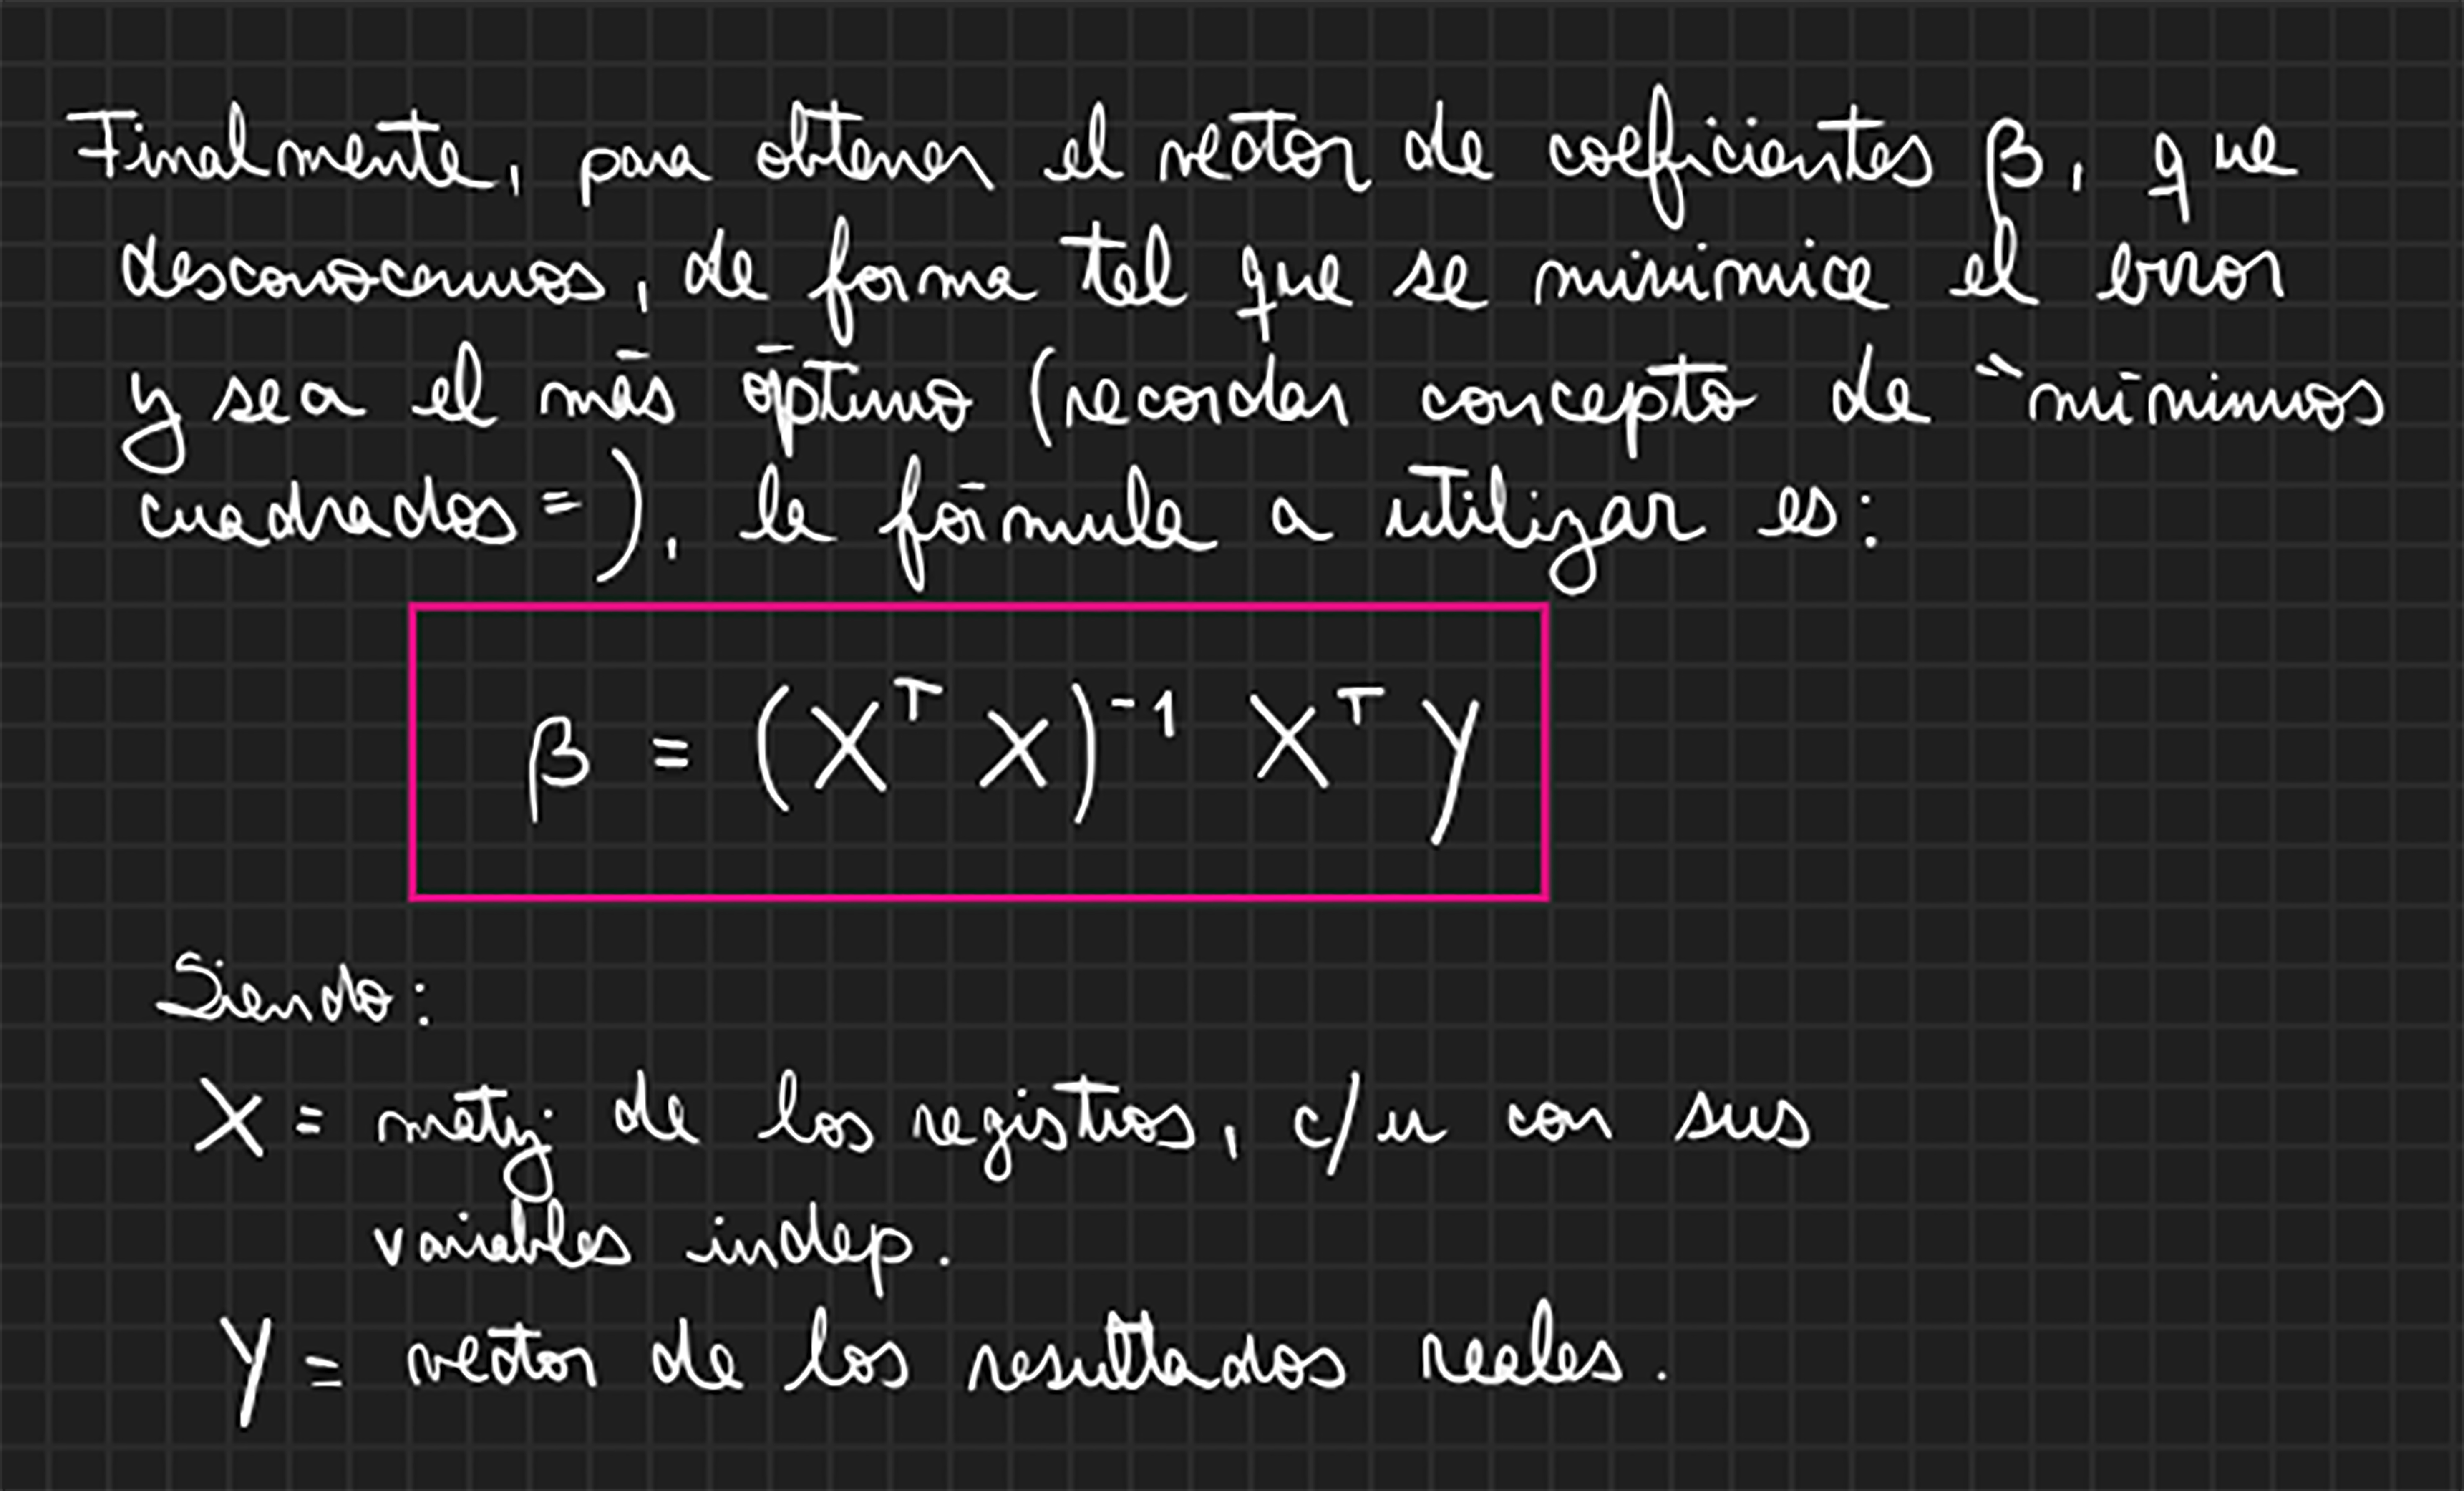 Finalmente, para obtener el vector de coeficientes β, que
desconocemos, de forma tal que se minimice el error
y sea el más óptimo (recordar concepto de "mínimos
cuadrados"), la fórmula a utilizar es:
β = (Xᵀ X)⁻¹ Xᵀ Y
Siendo:
X = matriz de los registros, c/u con sus
variables indep.
Y = vector de los resultados reales.